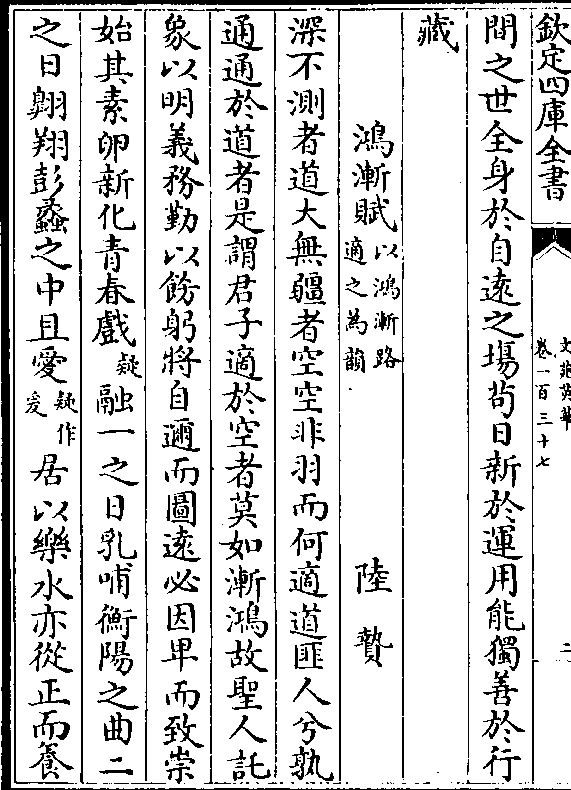 欽定四庫全書
文苑英華
卷一百三十七
二
間之世全身於自遠之場苟日新於運用能獨善於行
藏
鴻漸賦以鴻漸路適之為韻
陸贄
深不測者道大無疆者空空非羽而何適道匪人兮孰
通通於道者是謂君子適於空者莫如漸鴻故聖人託
象以明義務勤以飭躬將自邇而圖遠必因卑而致崇
始其素卵新化青春戲疑融一之日乳哺衡陽之曲二
之日翺翔彭蠡之中且愛疑作爰居以樂水亦從正而養